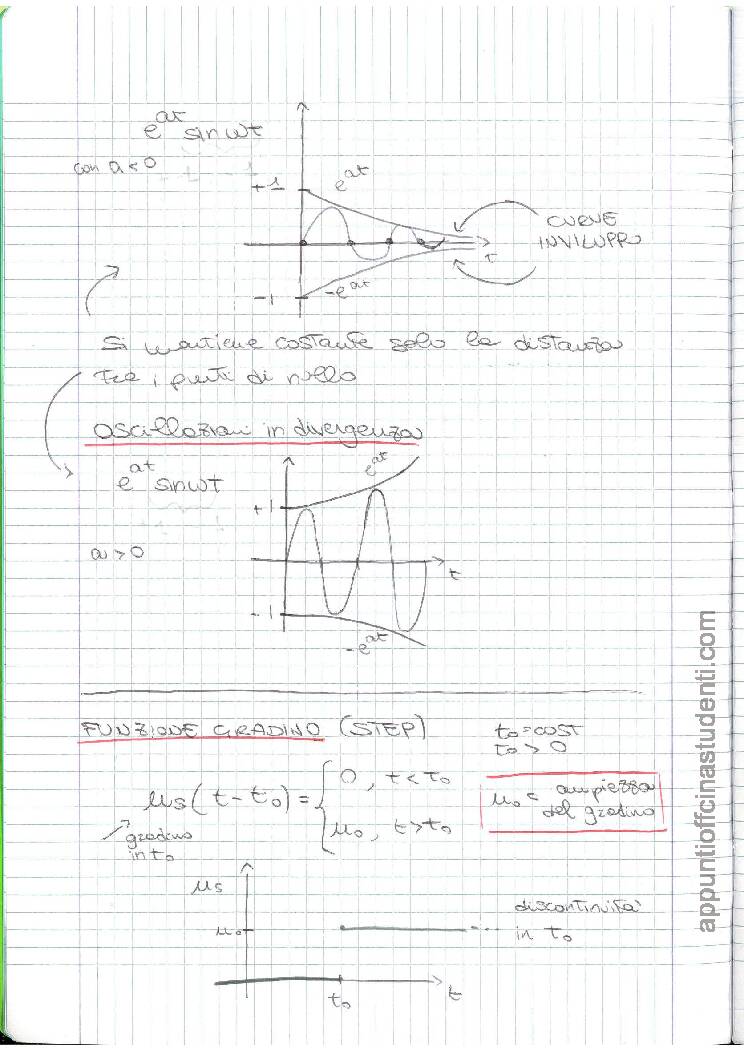 e^{at} sin ωt
con a < 0
e^{at}
+1
CURVE
INVILUPPO
t
-1
-e^{at}
Si mantiene costante solo la distanza
tra i punti di nullo
Oscillazioni in divergenza
e^{at} sin ωt
e^{at}
+1
a > 0
t
-1
-e^{at}
FUNZIONE GRADINO (STEP)
t₀ = COST
t₀ > 0
μs(t-t₀) = { 0, t < t₀
μ₀, t > t₀
μ₀ = ampiezza
del gradino
gradino
in t₀
μs
discontinuità
μ₀
in t₀
t₀
t
appuntioffcinastudenti.com